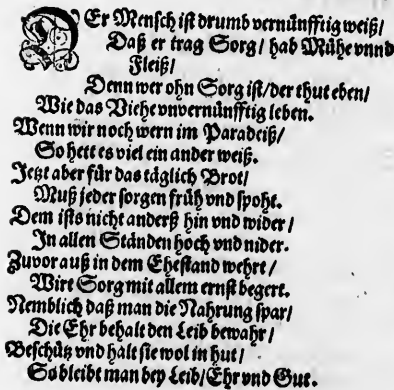 DEr Mensch ist drumb vernünfftig weiß/
Daß er trag Sorg/ hab Mühe vnnd
Fleiß/
Denn wer ohn Sorg ist/der thut eben/
Wie das Viehe vnvernünfftig leben.
Wenn wir noch wern im Paradeiß/
So hett es viel ein ander weiß.
Jetzt aber für das täglich Brot/
Muß jeder sorgen früh vnd spoht.
Dem ists nicht anderß hin vnd wider/
In allen Ständen hoch vnd nider.
Zuvorauß in dem Ehestand wehrt/
Wirt Sorg mit allem ernst begert.
Nemblich daß man die Nahrung spar/
Die Ehr behalt den Leib bewahr/
Beschütz vnd halt sie wol in hut/
So bleibt man bey Leib/Ehr vnd Gut.